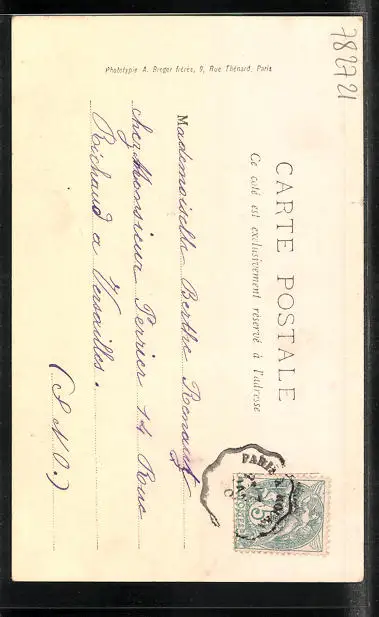 782721
CARTE POSTALE
Ce coté est exclusivement réservé à l'adresse
Mademoiselle Berthe Renault
chez Monsieur Perrier 14 Rue
Richaud a Versailles.
(S et O.)
PARIS A
5
POSTES
Phototypie A. Breger frères, 9, Rue Thénard, Paris